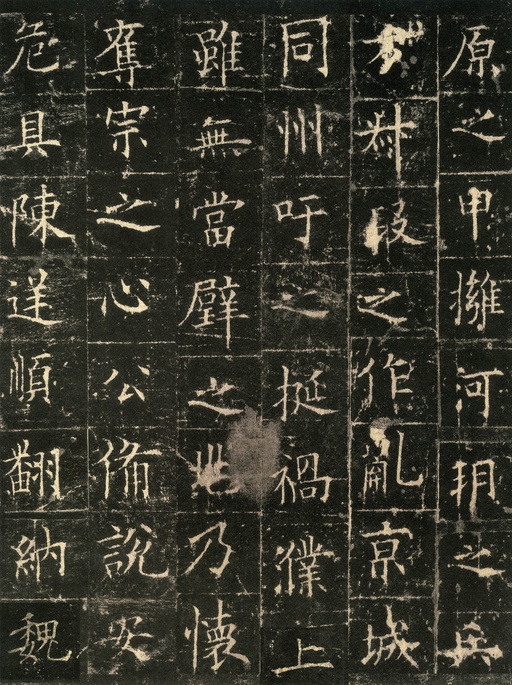 原之甲擁河朔之兵
方叔段之作亂京城
同州吁之挺禍濮上
雖無當璧之兆乃懷
奪宗之心公備說安
危具陳逆順翻納魏